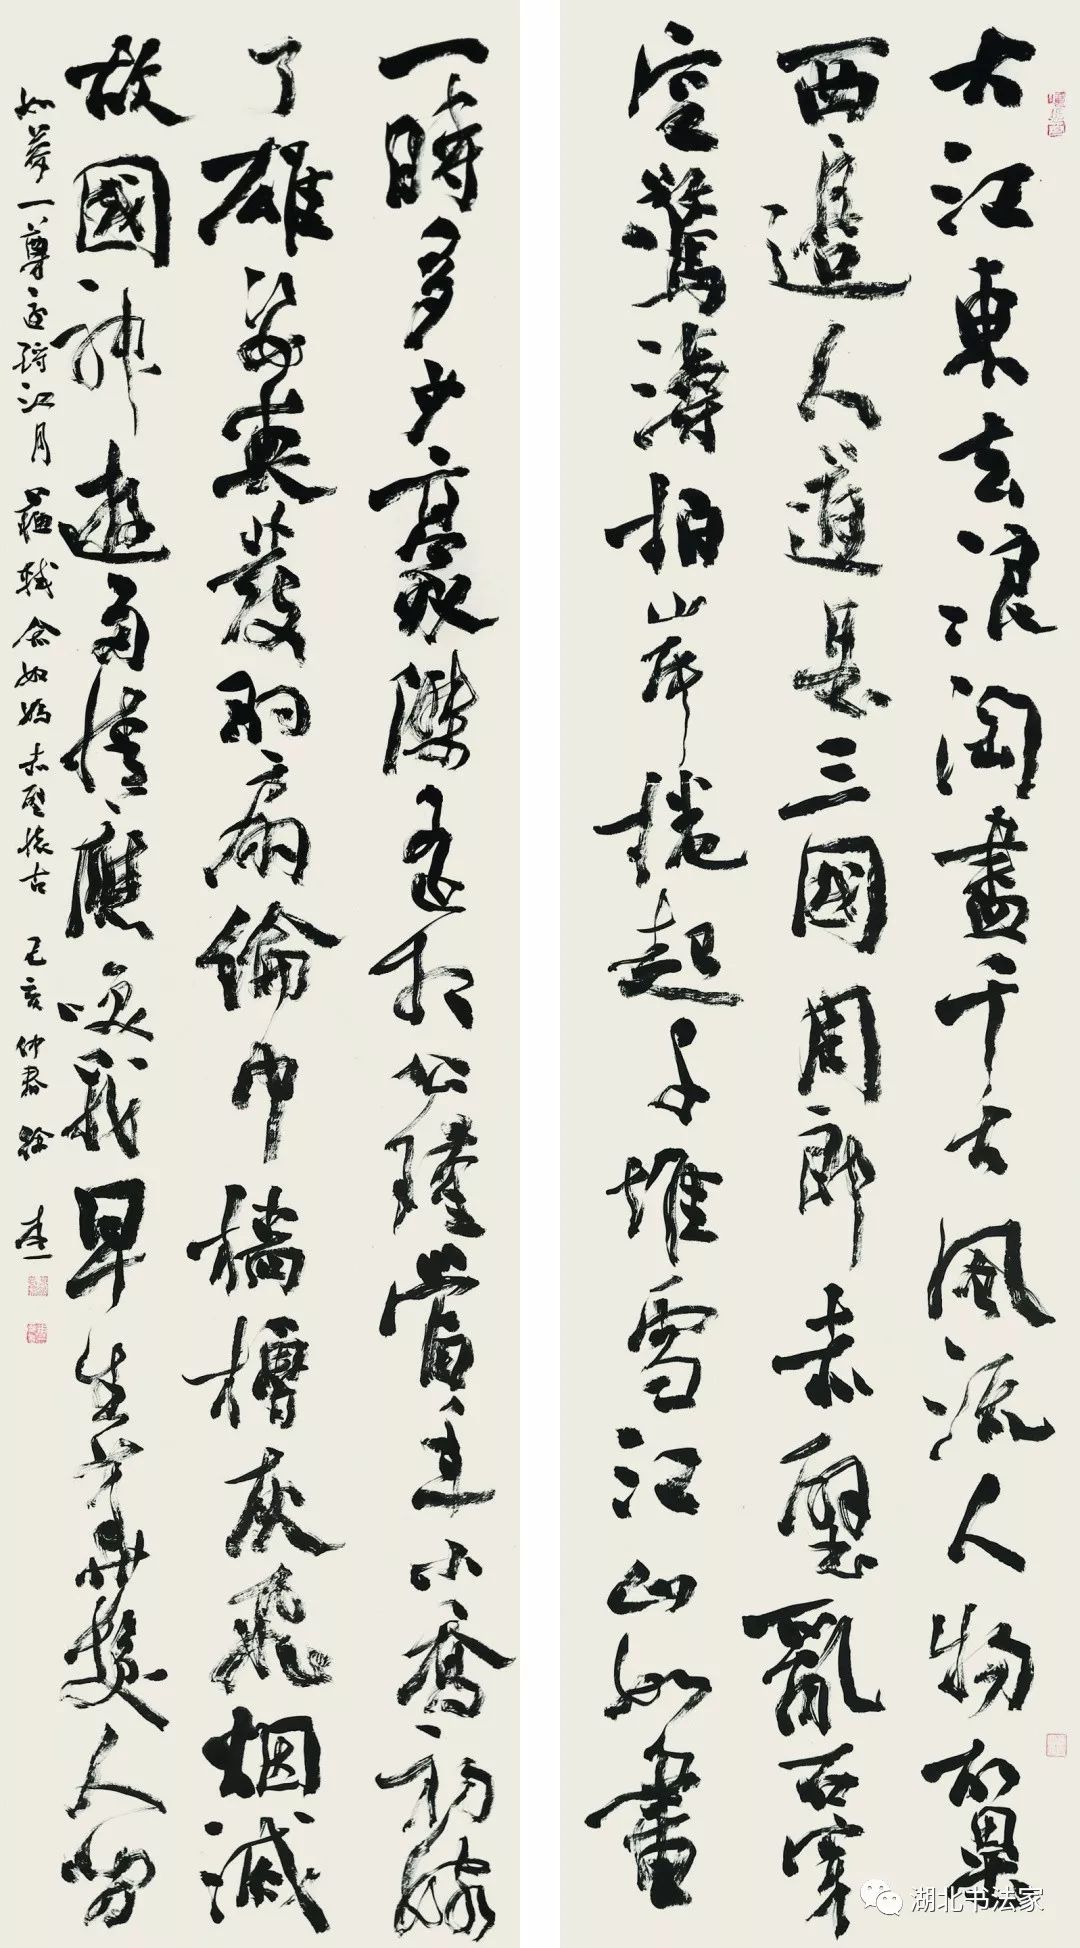 大江東去浪淘盡千古風流人物故壘
西邊人道是三國周郎赤壁亂石穿
空驚濤拍岸捲起千堆雪江山如畫
一時多少豪傑遥想公瑾當年小喬初嫁
了雄姿英發羽扇綸巾檣櫓灰飛烟滅
故國神遊多情應笑我早生華髮人間
如夢一尊還酹江月 蘇軾念奴嬌赤壁懷古 己亥仲春 徐
湖北书法家